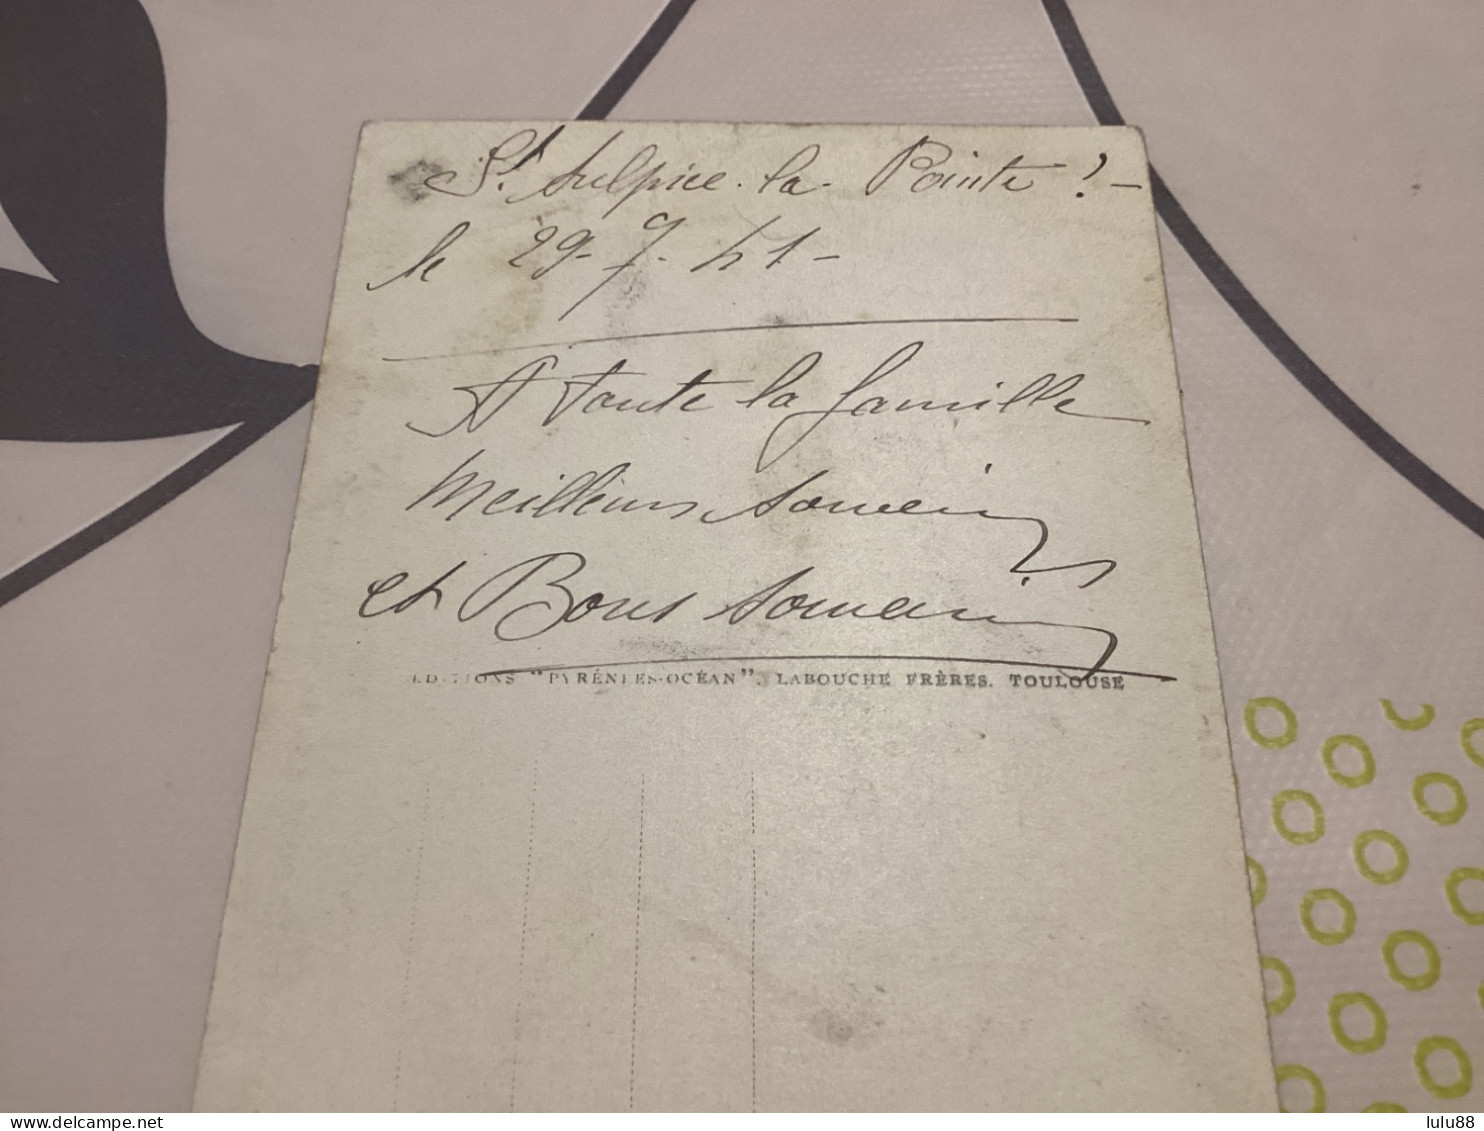 St Sulpice. la. Pointe ! -
le 29-7-41-
A toute la famille
Meilleurs souvenirs
et Bons souvenirs
EDITIONS "PYRÉNÉES-OCÉAN". LABOUCHE FRÈRES. TOULOUSE
delcampe.net
lulu88